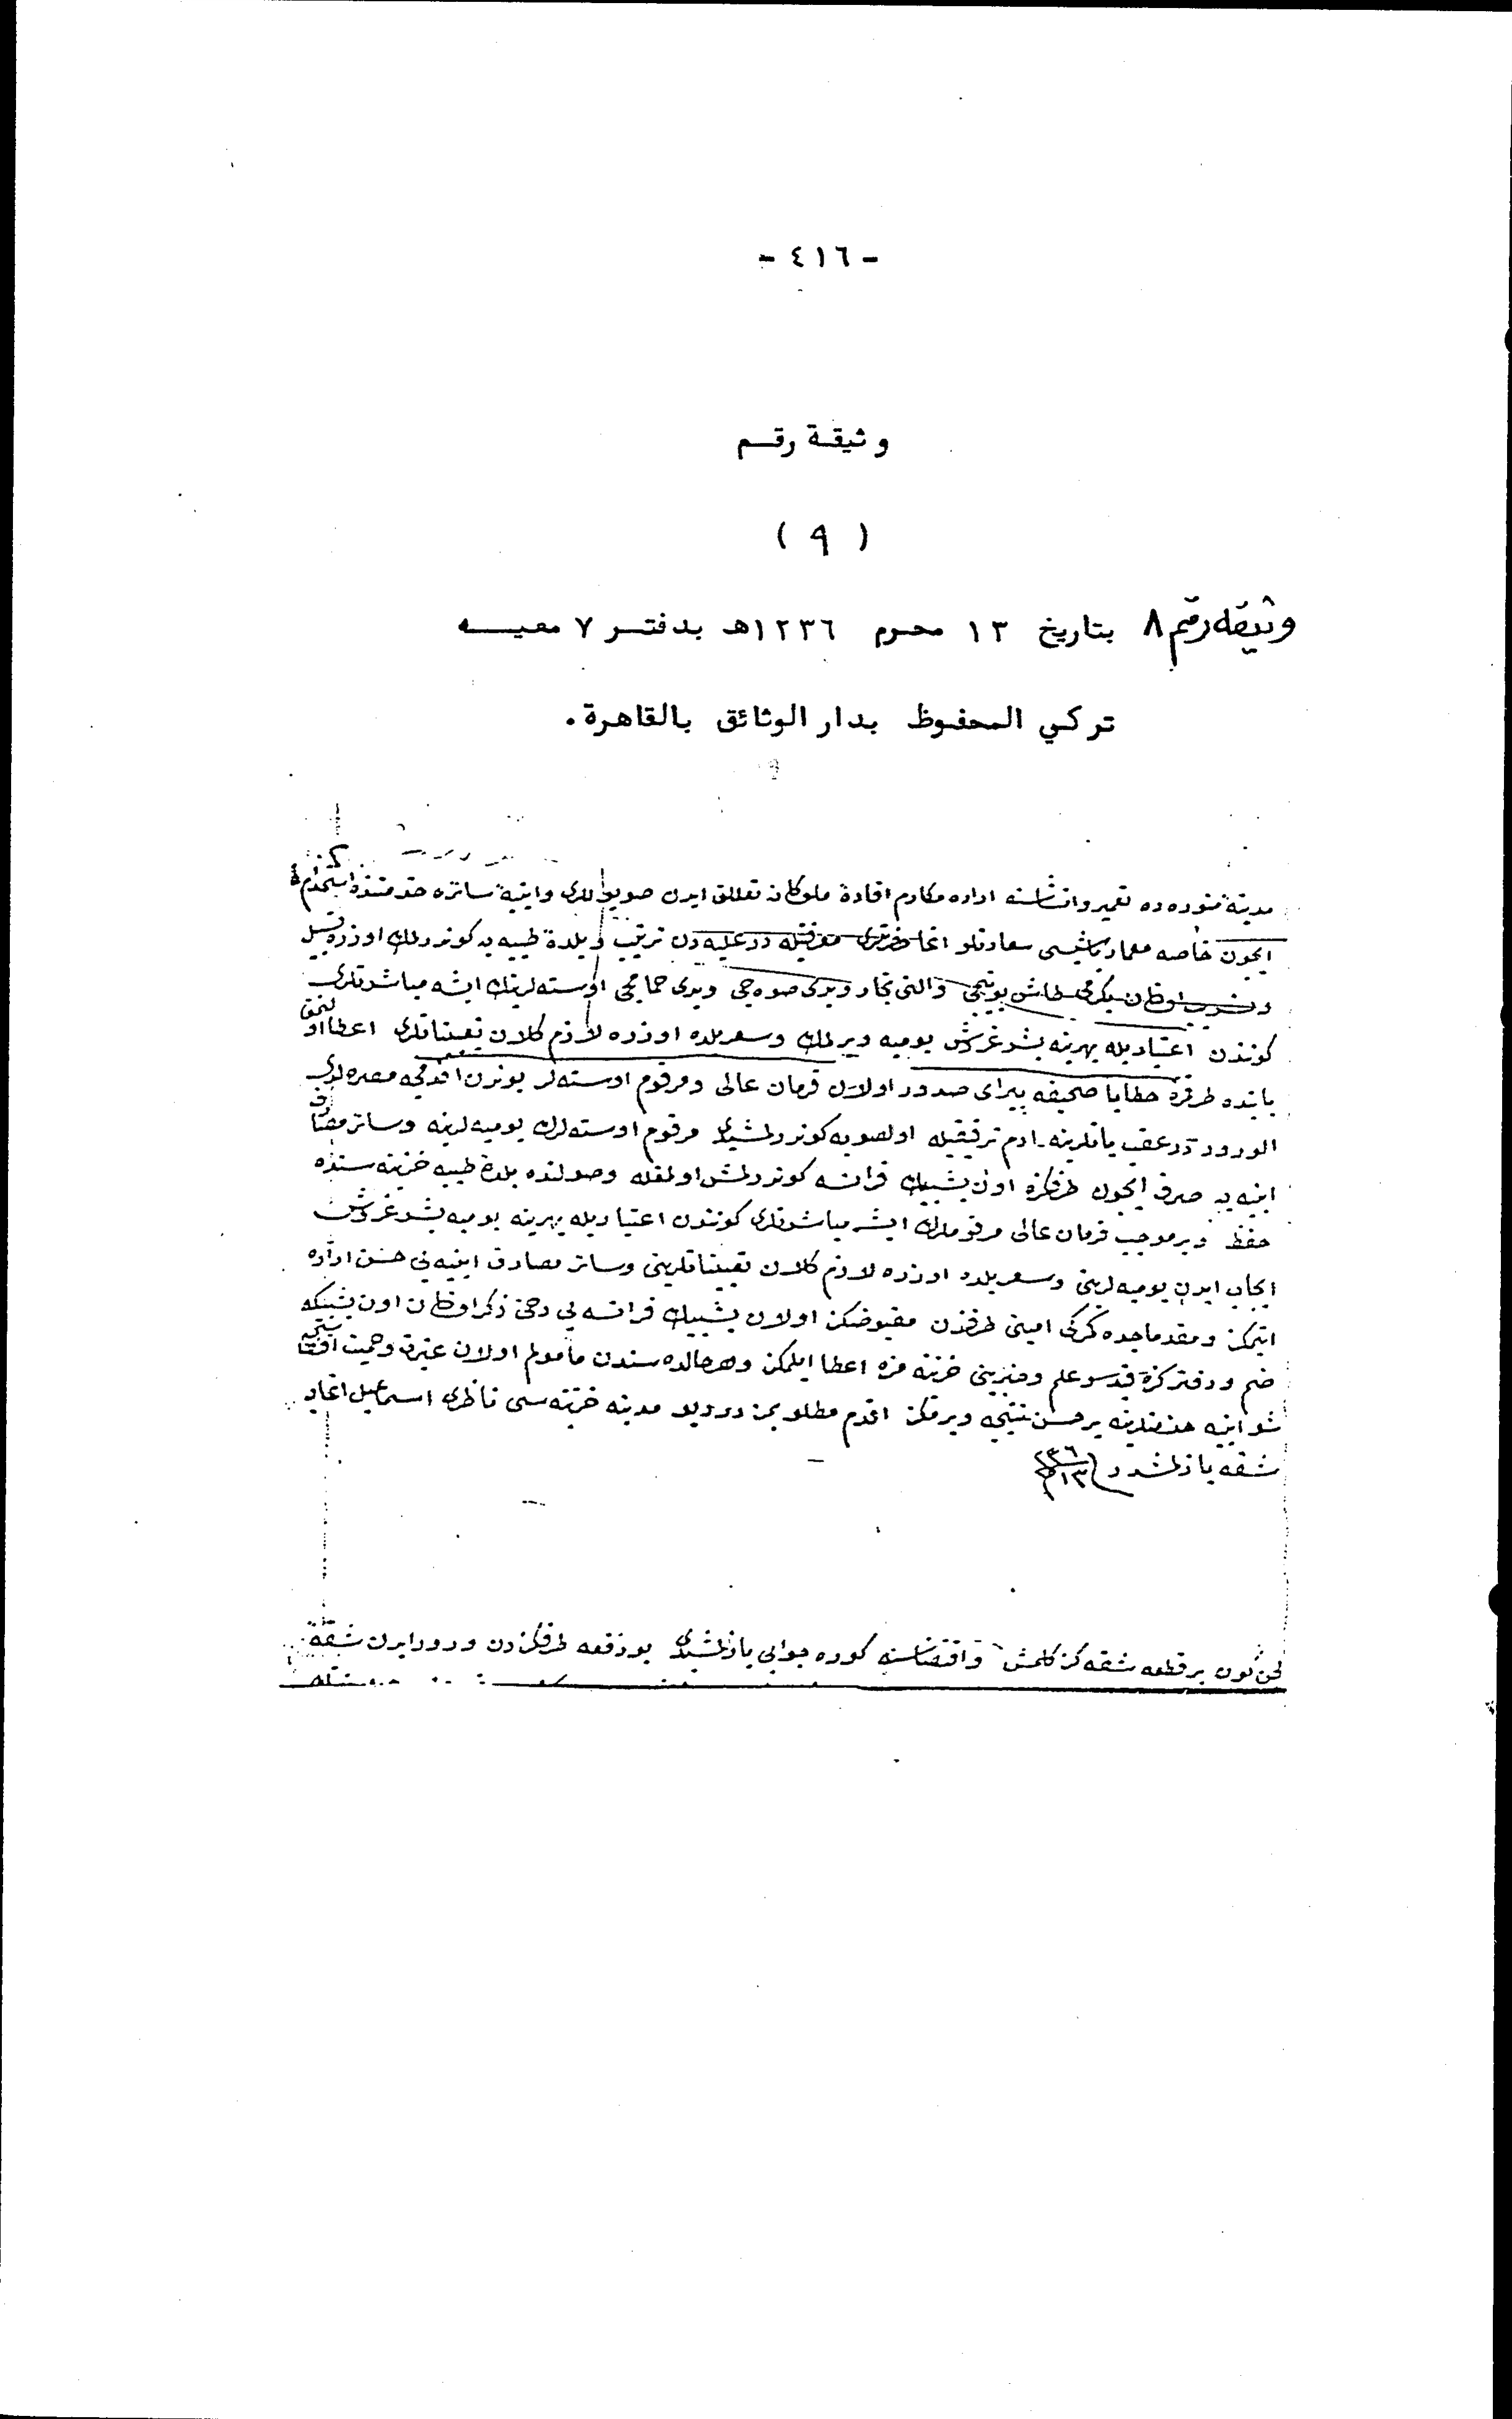 - ٤١٦ -
وثيقة رقم
( ٩ )
وثيقة رقم ٨ بتاريخ ١٣ محرم ١٢٣٦هـ بدفتر ٧ معيه
تركي المحفوظ بدار الوثائق بالقاهرة .
مدينهٔ منوره ده تعمير وانشاسنه اراده مكارم افادهٔ ملوكانه تعلق ايدن صويوللری وابنيهٔ سائره خدمتنده استخدام
ايچون خاصه معمار باشيسی سعادتلو اغا حضرتلری معرفتيله درعليه دن ترتيب وبلدهٔ طيبه يه كوندرلمك اوزره
اولنان يكرمی طاش يونيجی والتی نجار ويدی صوه جی ويدی حمامجی اوسته لرينك ايشه مباشرتلری
كونندن اعتباريله بهرينه بشر غروش يوميه ويرلمك وسعر بلده اوزره لازم كلان تعييناتلری اعطا
بابنده طرفمزه خطابا صحيفه پيرای صدور اولان فرمان عالی ومرقوم اوسته لر بوندن اقدمجه مصره لدی
الورود درعقب يانلرينه ادم ترفيقيله اولصوبه كوندرلمشيدی مرقوم اوسته لرك يوميه لرينه وسائر مصارف
ابنيه يه صرف ايچون طرفكزه اون بشبيك فرانسه كوندرلمش اولمغله وصولنده بلدهٔ طيبه خزينه سنده
حفظ وبرموجب فرمان عالی مرقوملرك ايشه مباشرتلری كونندن اعتباريله بهرينه يوميه بشر غروش
ايجاب ايدن يوميه لرينی وسعر بلده اوزره لازم كلان تعييناتلرينی وسائر مصارف ابنيه يی حسن اداره
ايتمكز ومقدماجده كمركی امينی طرفندن مقبوضكز اولان بشبيك فرانسه يی دخی ذكر اولنان اون بشبيكه
ضم ودفتركزه قيد وعلم وخبرينی خزينه مزه اعطا ايلمكز وهر حالده سزدن مأمولم اولان غيرت وحميت
شو ابنيه خدمتلرينه بر حسن نتيجه ويرمكز اقدم مطلوبمز درديو مدينه خزينه سی ناظری اسماعيل اغايه
شقه يازلمشدر ١٣ م ٢٣٦
بر قطعه شقه كز كلمش واقتضاسنه كوره جوابی يازلمشيدی بو دفعه طرفكزدن ورود ايدن شقه